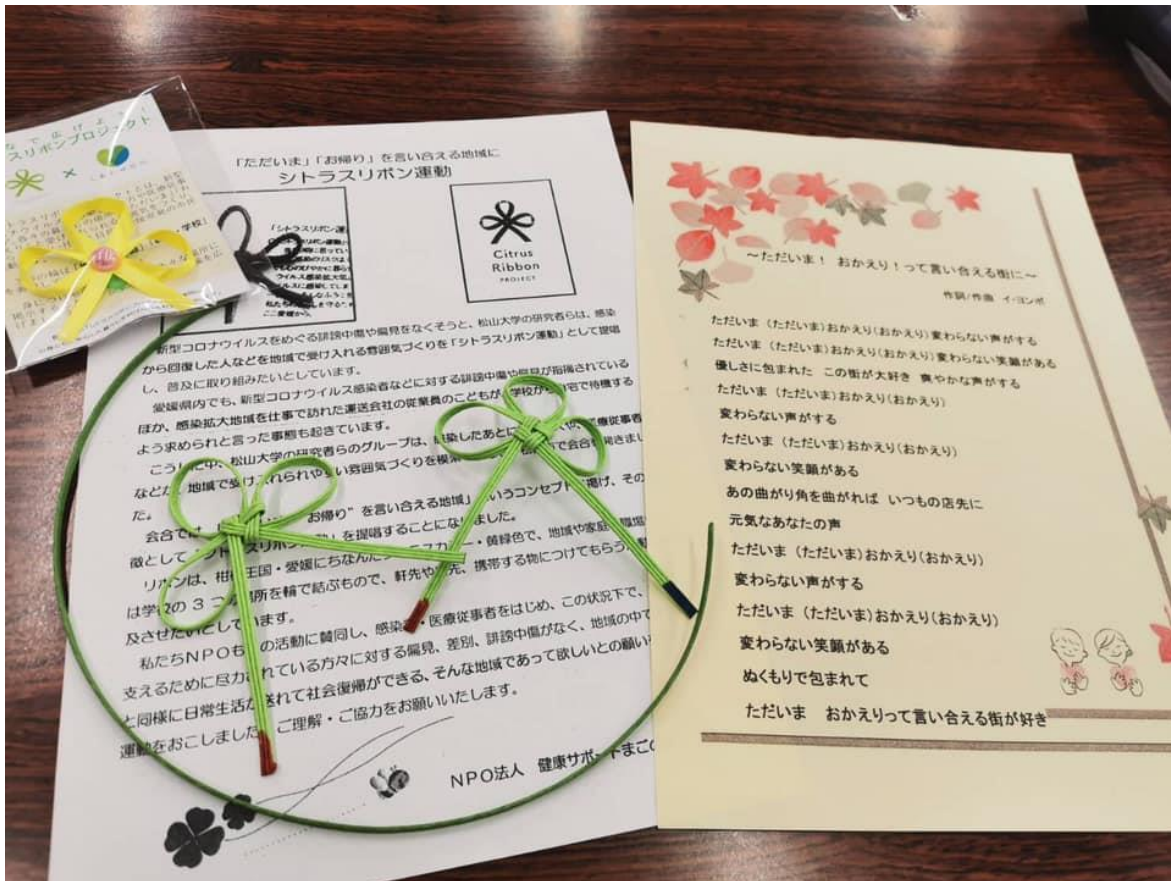 スリボンプロジェクト
×
「ただいま」「お帰り」を言い合える地域に
シトラスリボン運動
Citrus
Ribbon
PROJECT
新型コロナウイルスをめぐる誹謗中傷や偏見をなくそうと、松山大学の研究者らは、感染
から回復した人などを地域で受け入れる雰囲気づくりを「シトラスリボン運動」として提唱
し、普及に取り組みたいとしています。
愛媛県内でも、新型コロナウイルス感染者などに対する誹謗中傷や偏見が指摘されている
ほか、感染拡大地域を仕事で訪れた運送会社の従業員のこどもが、学校から自宅で待機する
よう求められと言った事態も起きています。
中、松山大学の研究者らのグループは、感染したあとに 医療従事者
など 地域で受け入れられやすい雰囲気づくりを模索 で会合を開きまし
た。
会合では お帰り”を言い合える地域」というコンセプト 掲げ、その
徴として を提唱することになりました。
リボンは、柑 王国・愛媛にちなんだ ・黄緑色で、地域や家庭 職場
は学校の3つ 場所を輪で結ぶもので、軒先や 先、携帯する物につけてもらう
及させたいとしています。
私たちNPOも の活動に賛同し、感染 ・医療従事者をはじめ、この状況下で、
支えるために尽力されている方々に対する偏見、差別、誹謗中傷がなく、地域の中で
と同様に日常生活が送れて社会復帰ができる、そんな地域であって欲しいとの願い
運動をおこしました ご理解・ご協力をお願いいたします。
NPO法人 健康サポートまごの
～ただいま！ おかえり！って言い合える街に～
作詞/作曲 イ・ヨンボ
ただいま（ただいま）おかえり（おかえり）変わらない声がする
ただいま（ただいま）おかえり（おかえり）変わらない笑顔がある
優しさに包まれた この街が大好き 爽やかな声がする
ただいま（ただいま）おかえり（おかえり）
変わらない声がする
ただいま（ただいま）おかえり（おかえり）
変わらない笑顔がある
あの曲がり角を曲がれば いつもの店先に
元気なあなたの声
ただいま（ただいま）おかえり（おかえり）
変わらない声がする
ただいま（ただいま）おかえり（おかえり）
変わらない笑顔がある
ぬくもりで包まれて
ただいま おかえりって言い合える街が好き